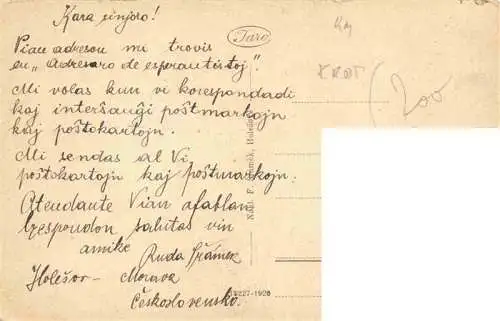 Kara sinjoro!
Vian adreson mi trovis
en „Adresaro de esperantistoj".
Mi volas kun vi korespondadi
kaj interŝanĝi poŝtmarkojn
kaj poŝtokartojn.
Mi sendas al Vi
poŝtokartojn kaj poŝtmarkojn.
Atendante Vian afablan
respondon salutas vin
amike
Ruda Šrámek
Holešov - Morava
Československo.
Taro
200
Nákl. F. Holešov
15227-1928